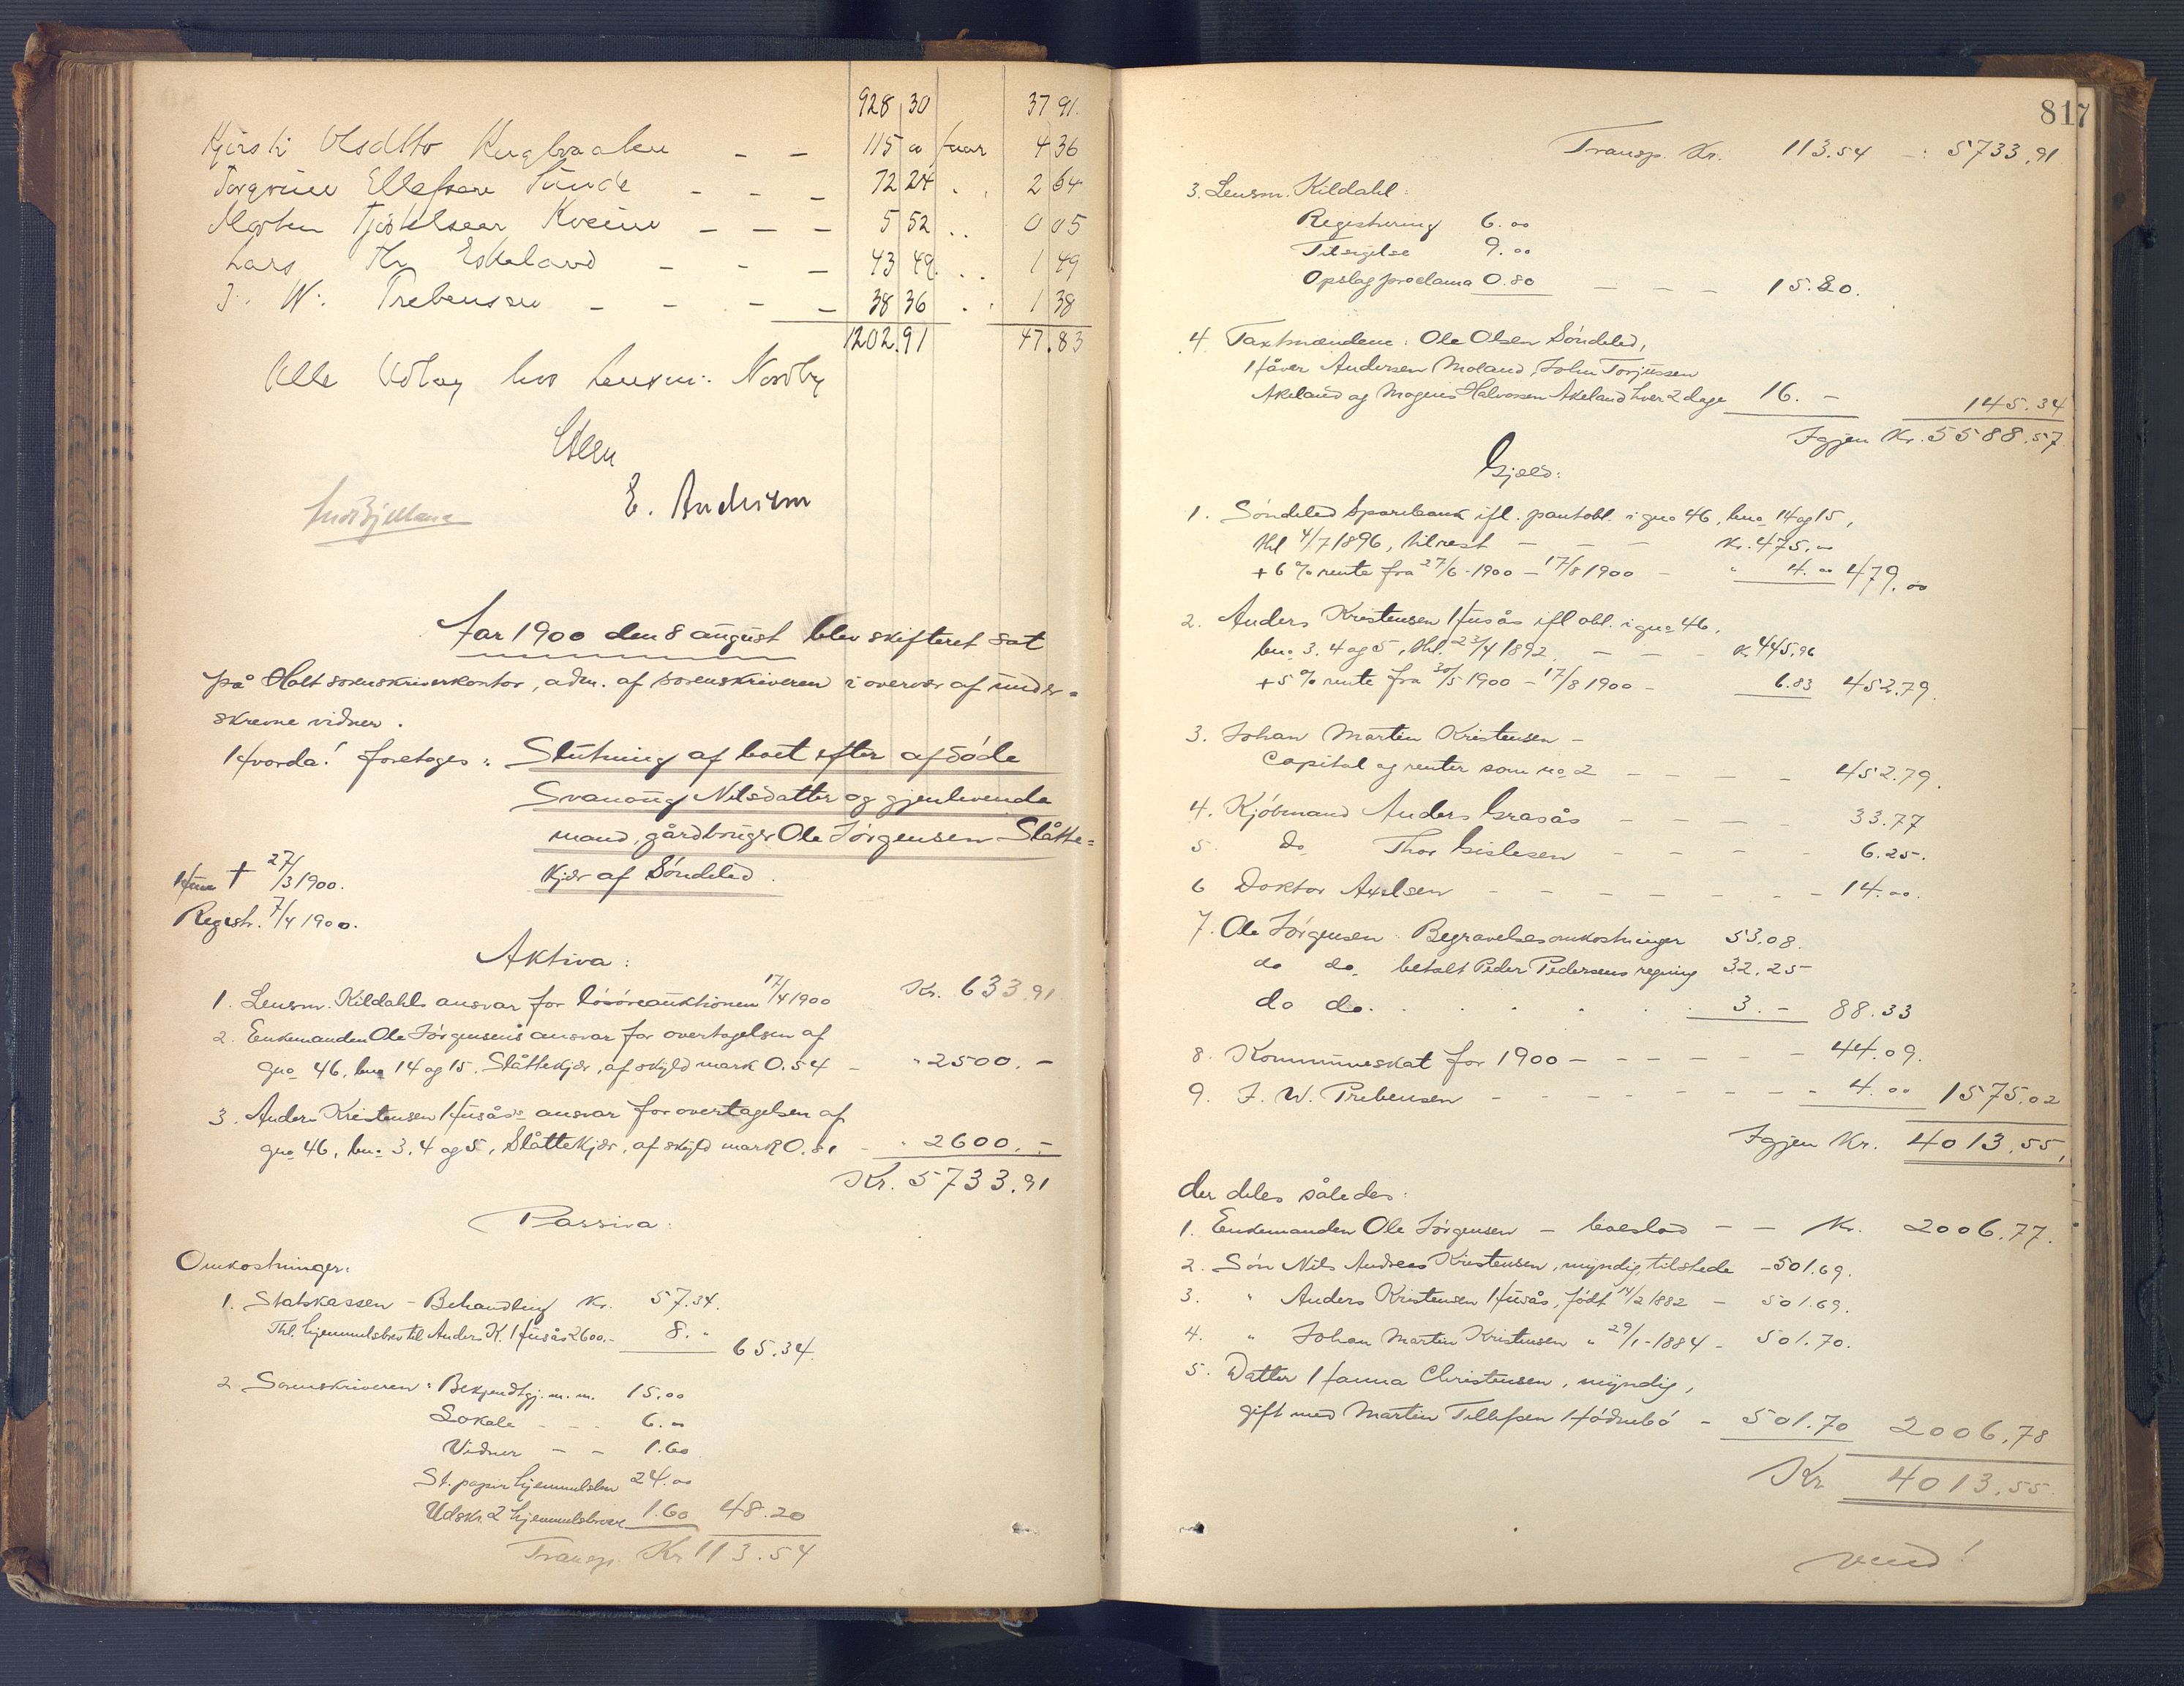 928 30 37 91.
Kjirsti Olsdtto - - 115 " faar 4 36
Torgrim Ellefsen Sunde - - - 72 24 . . 2 64
Morten - - - 5 52 . . 0 05
Lars Kr. Eskeland - - - 43 49. . . 1 49
J. W. Prebensen - - - - 38 36 . . 1 38
1202.91 47.83
Alle Udlæg hos Lensm: Nordby
E. Andersen
Aar 1900 den 8 august blev skifteret sat
på Holt sorenskriverkontor, adm. af sorenskriveren i overvær af under=
skrevne vidner.
Hvorda! foretoges: Slutning af boet efter afdøde
Svanaug Nilsdatter og gjenlevende
mand, gårdbruger Ole Jørgensen Slåtte=
kjær af Søndeled.
Hun † 27/3 1900.
Registr. 7/4 1900.
Aktiva:
1. Lensm. Kildahls ansvar for løsøreauktionen 17/4 1900 Kr. 633.91
2. Enkemanden Ole Jørgensens ansvar for overtagelsen af
gno 46, bno 14 og 15, Slåttekjær, af skyld mark 0.54 - " 2500. -
3. Anders Kristensen Husås's ansvar for overtagelsen af
gno 46, bno 3, 4 og 5, Slåttekjær, af skyld mark 0.81 - " 2600. -
Kr. 5733.91
Passiva:
Omkostninger:
1. Statskassen - Behandling Kr. 57.34.
Thl. hjemmelsbrev til Anders K. Husås 2600.- 8. " 65.34.
2. Sorenskriveren: Bekjendtgj. m. m. 15.00
Lokale - - - 6. 00
Vidner - - 1.60
St. papir hjemmelsbr 24.00
Udskr. 2 hjemmelsbreve 1.60 48.20
Transp. Kr 113.54
817
Transp. Kr. 113.54 -: 5733.91
3. Lensm. Kildahl:
Registrering 6.00
Tilsigelse 9.00
Opslag proclama 0.80 - - - 15.80.
4 Taxtmændene: Ole Olsen Søndeled,
Håver Andersen Moland, John Torjussen
Akeland og Mogens Halvorsen Akeland hver 2 dage 16. - 145.34
Igjen Kr. 5588.57
Gjæld:
1. Søndeled Sparebank ifl. pantobl. i gno 46, bno 14 og 15,
thl 4/7 1896, tilrest - - - Kr. 475.00
+ 6 % rente fra 27/6-1900 - 17/8 1900 - " 4.00 479.00
2. Anders Kristensen Husås ifl obl. i gno 46,
bno 3, 4 og 5, thl. 23/4 1892 - - - Kr 445.96
+ 5 % rente fra 30/5 1900 - 17/8 1900 - 6.83 452.79.
3. Johan Martin Kristensen -
Capital og renter som no 2 - - - - 452.79.
4. Kjøbmand Anders Grasås - - - - 33.77
5. Do Thor Gislesen - - - - 6.25.
6 Doktor Axelsen - - - - - - - 14.00.
7. Ole Jørgensen Begravelsesomkostninger 53.08.
do do. betalt Peder Pedersens regning 32.25
do do. . . . . . 3. - 88.33
8. Kommuneskat for 1900 - - - - - - 44.09.
9. J. W. Prebensen - - - - - - - - 4.00 1575.02
Igjen Kr. 4013.55,
der deles således:
1. Enkemanden Ole Jørgensen - boeslod - - Kr. 2006.77.
2. Søn Nils Andreas Kristensen, myndig, tilstede - 501.69.
3. " Anders Kristensen Husås, født 14/2 1882 - 501.69.
4. " Johan Martin Kristensen " 29/1-1884 - 501.70.
5. Datter Hanna Christensen, myndig,
gift med Martin Tellefsen Hødnebø - 501.70 2006.78
Kr 4013.55
vend!